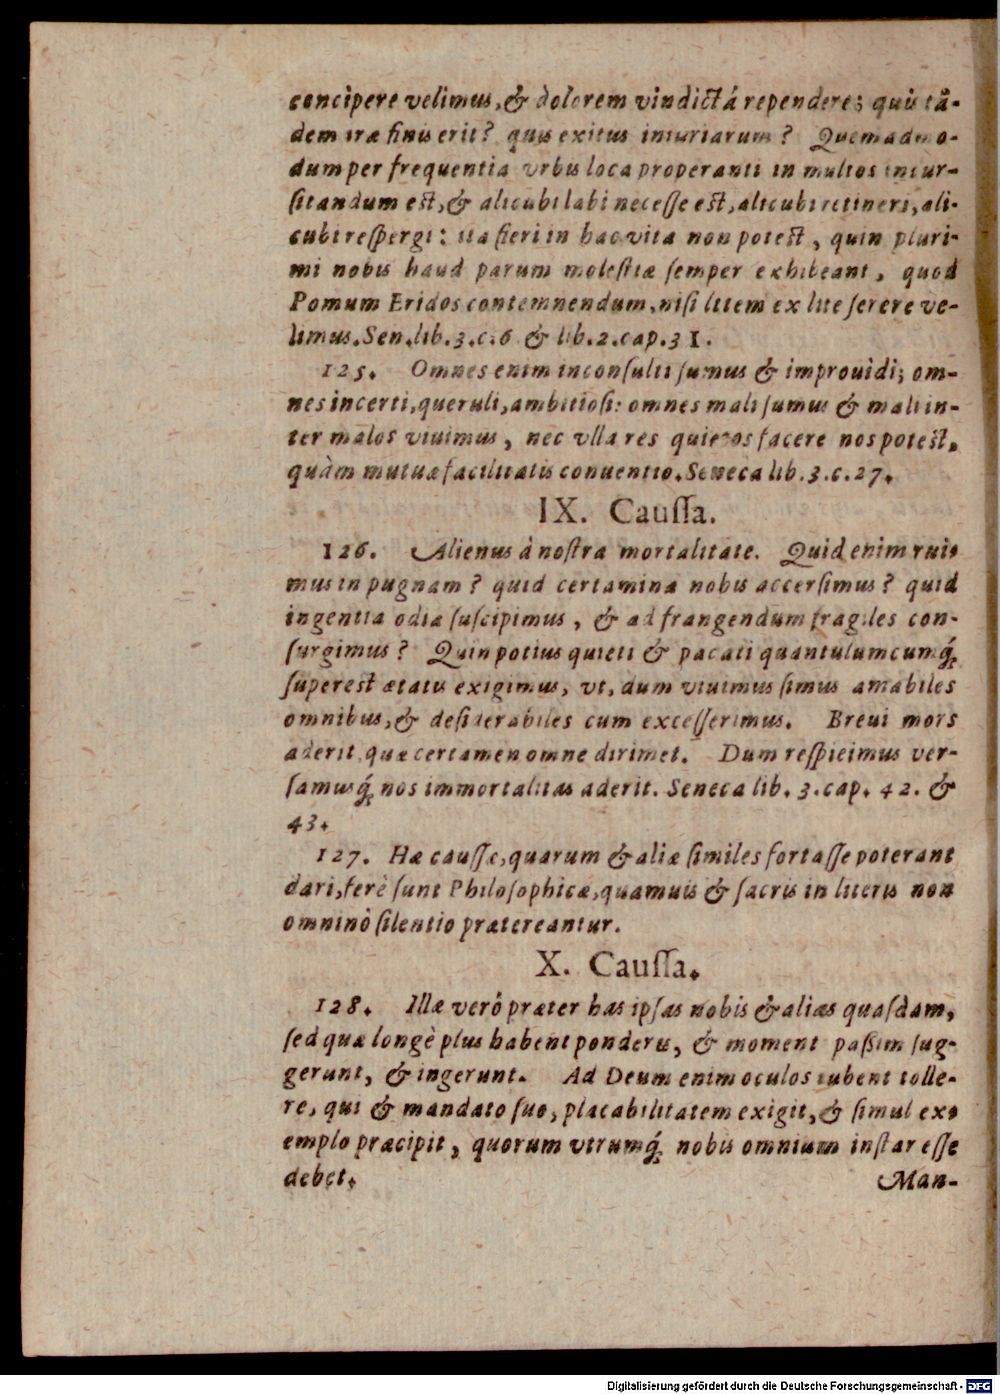 concipere velimus, & dolorem vindictâ rependere; quis tã-
dem iræ finis erit? quis exitus iniuriarum? Quemadmo-
dum per frequentia vrbis loca properanti in multos incur-
sitandum est, & alicubi labi necesse est, alicubi retineri, ali-
cubi respergi: ita fieri in hac vita non potest, quin pluri-
mi nobis haud parum molestiæ semper exhibeant, quod
Pomum Eridos contemnendum, nisi litem ex lite serere ve-
limus. Sen. lib. 3. c. 6 & lib. 2. cap. 31.
125. Omnes enim inconsulti sumus & improuidi; om-
nes incerti, queruli, ambitiosi: omnes mali sumus & mali in-
ter malos viuimus, nec vlla res quietos facere nos potest,
quàm mutuæ facilitatis conuentio. Seneca lib. 3. c. 27.
IX. Caussa.
126. Alienus à nostra mortalitate. Quid enim rui-
mus in pugnam? quid certamina nobis accersimus? quid
ingentia odia suscipimus, & ad frangendum fragiles con-
surgimus? Quin potius quieti & pacati quantulumcumq́;
superest ætatis exigimus, vt, dum viuimus simus amabiles
omnibus, & desiderabiles cum excesserimus. Breui mors
aderit, quæ certamen omne dirimet. Dum respicimus ver-
samusq́; nos immortalitas aderit. Seneca lib. 3. cap. 42. &
43.
127. Hæ caussæ, quarum & aliæ similes fortasse poterant
dari, ferè sunt Philosophicæ, quamuis & sacris in literis non
omninò silentio prætereantur.
X. Caussa.
128. Illæ verò præter has ipsas nobis & alias quasdam,
sed quæ longè plus habent ponderis, & moment passim sug-
gerunt, & ingerunt. Ad Deum enim oculos iubent tolle-
re, qui & mandato suo, placabilitatem exigit, & simul ex-
emplo præcipit, quorum vtrumq́; nobis omnium instar esse
debet.
Man-
Digitalisierung gefördert durch die Deutsche Forschungsgemeinschaft - DFG